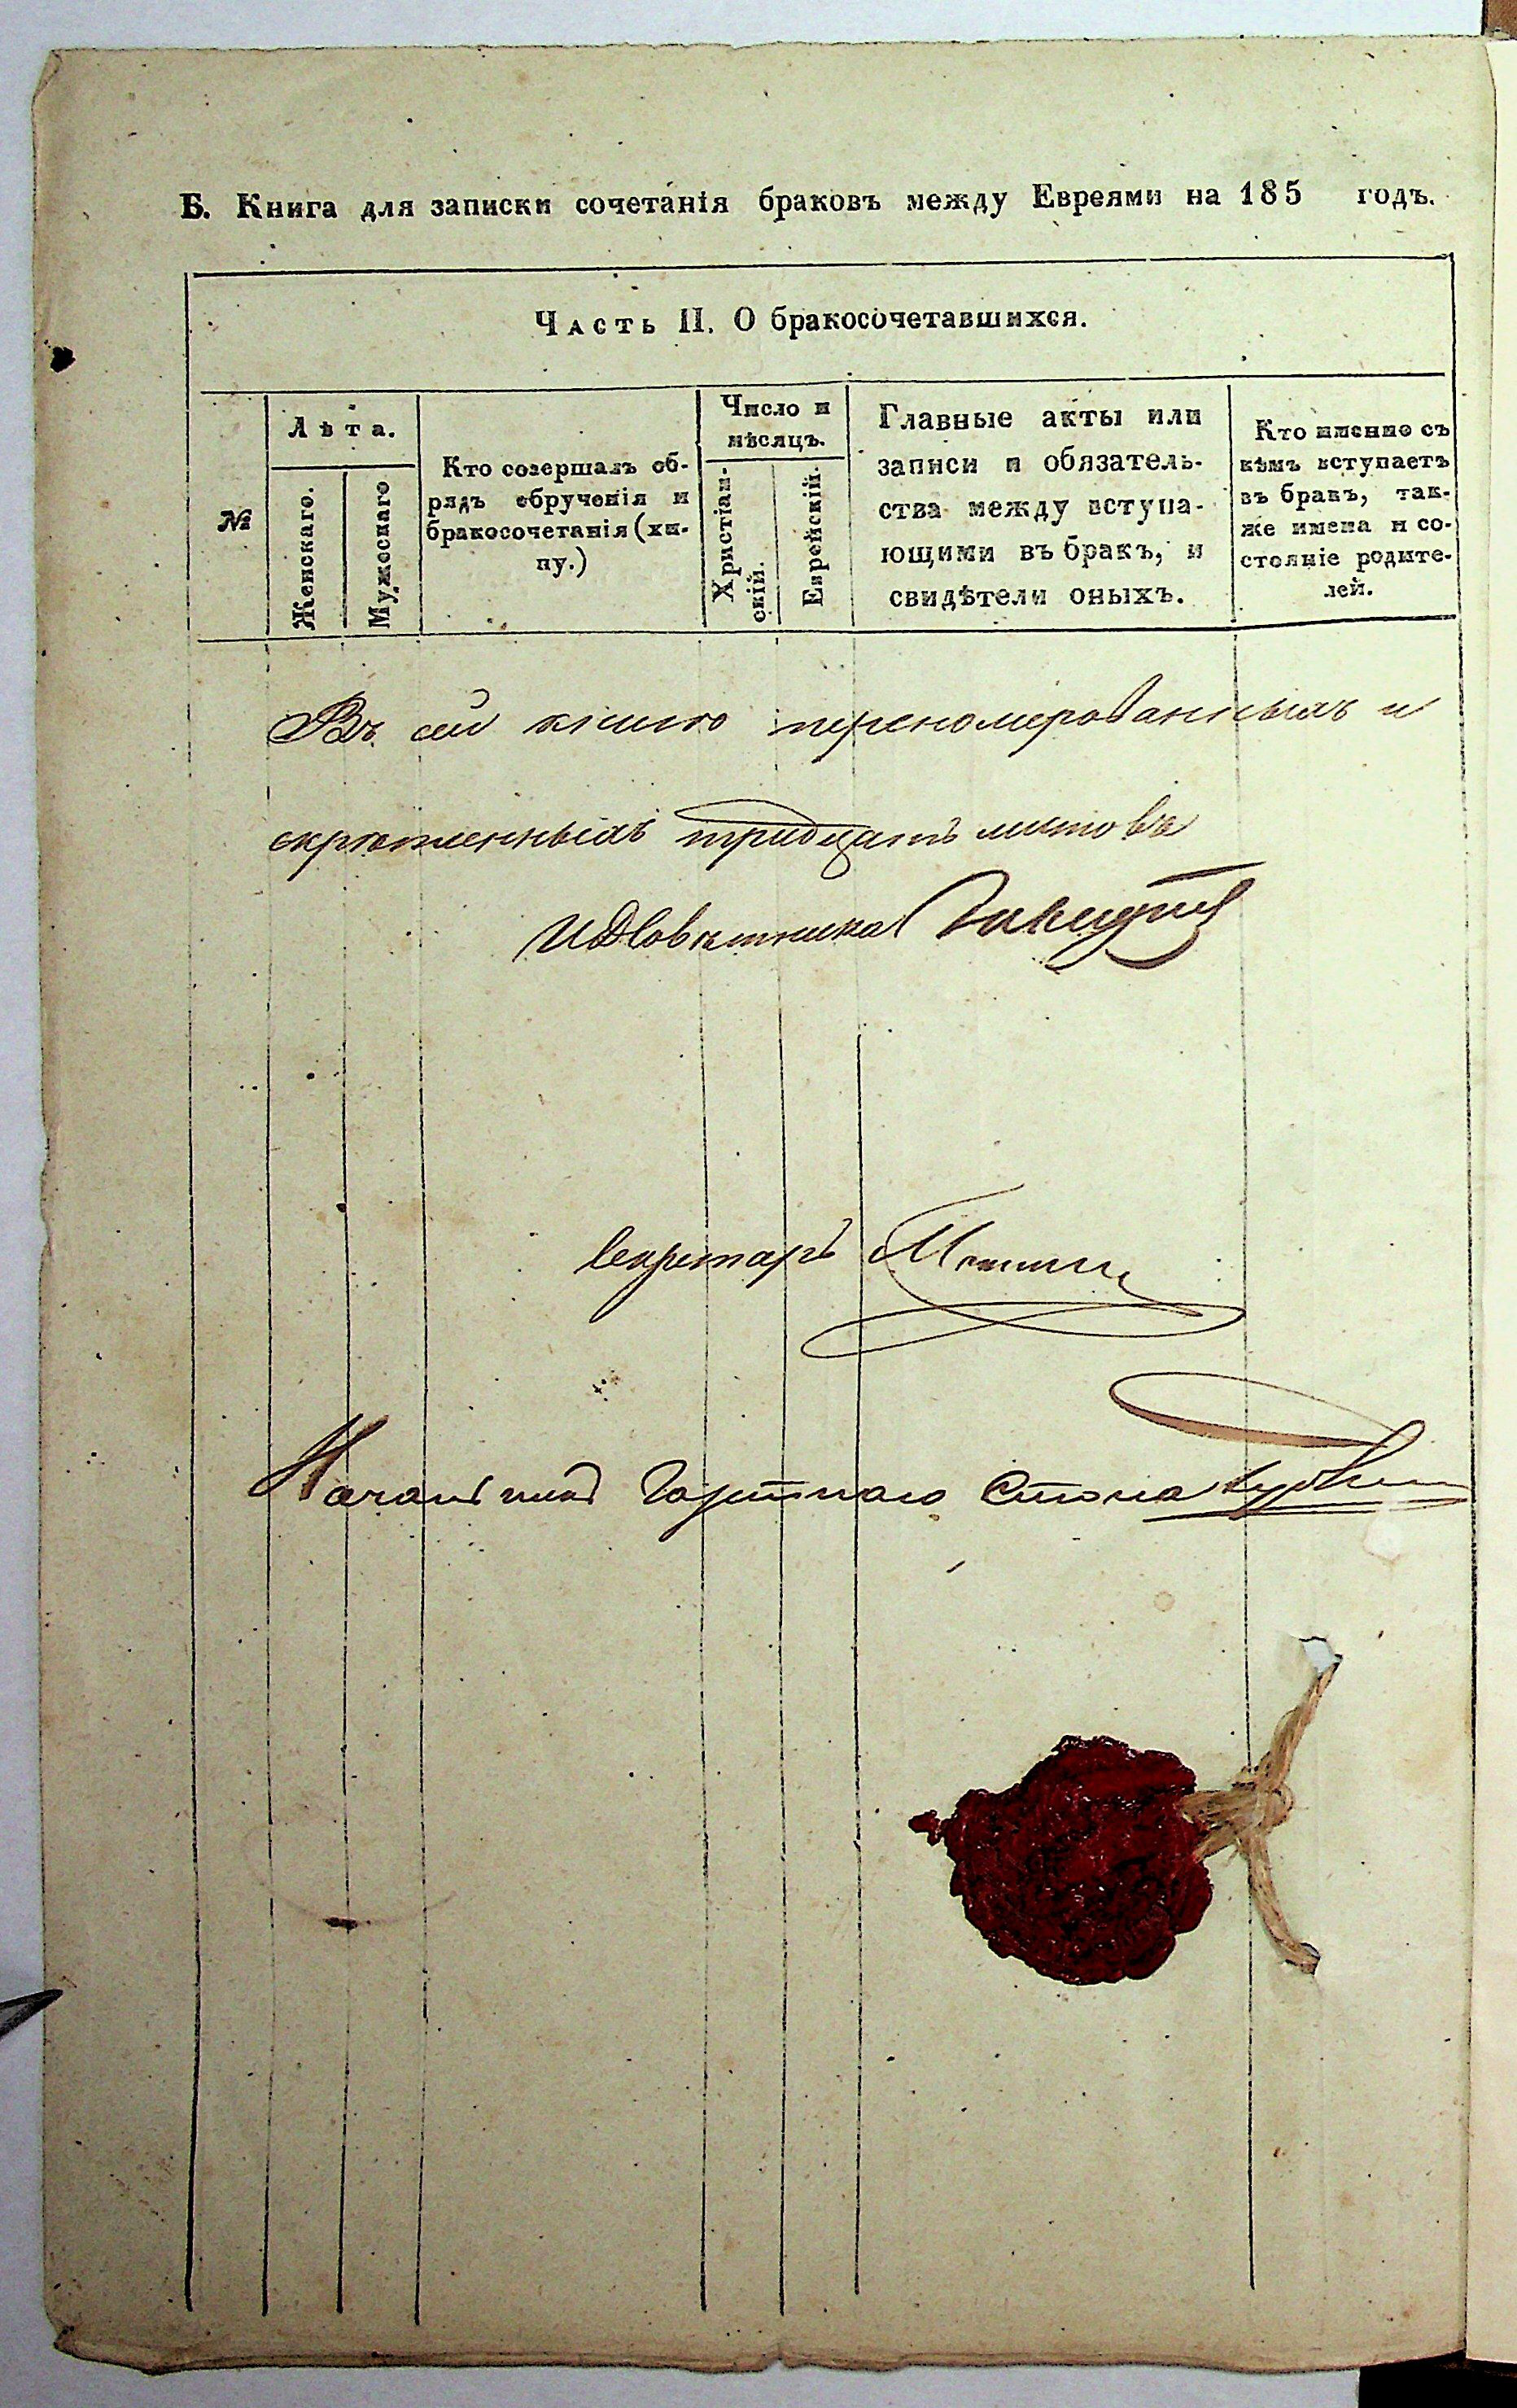 Б. Книга для записки сочетанія браковъ между Евреями на 185 годъ.
Часть II. О бракосочетавшихся.
№
Лѣта.
Женскаго.
Мужескаго
Кто совершалъ об-
рядъ обрученія и
бракосочетанія (хи-
пу.)
Число и
мѣсяцъ.
Христіан-
скій.
Еврейскій.
Главные акты или
записи и обязатель-
ства между вступа-
ющими въ бракъ, и
свидѣтели оныхъ.
Кто именно съ
кѣмъ вступаетъ
въ бракъ, так-
же имена и со-
стояніе родите-
лей.
Въ сей книгѣ перенумерованныхъ и
скрѣпленныхъ тридцать листовъ
Совѣтника
Секретарь
Начальникъ Газетнаго Стола